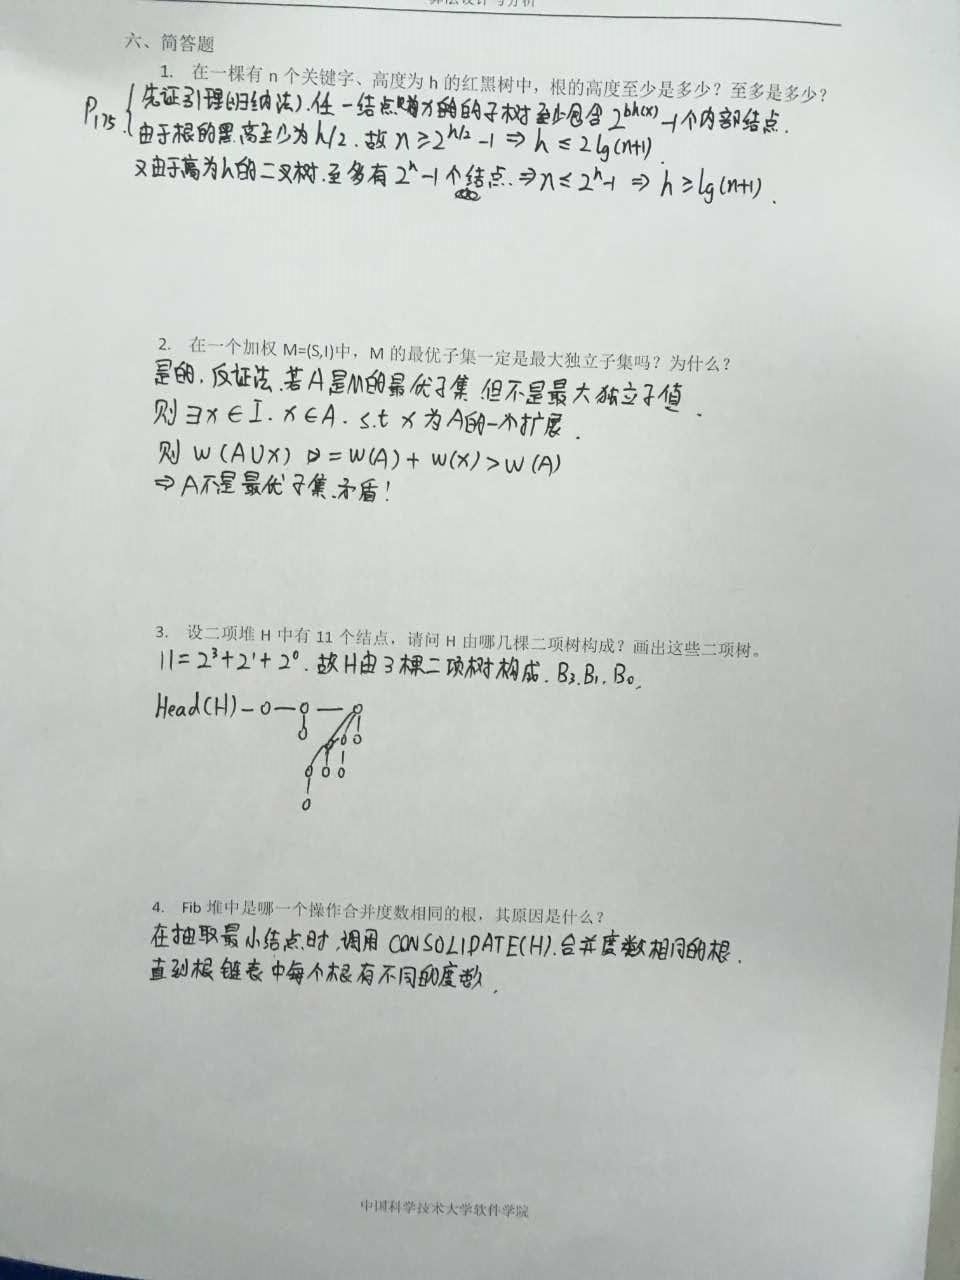 算法设计与分析
六、简答题
1. 在一棵有 n 个关键字、高度为 h 的红黑树中，根的高度至少是多少？至多是多少？
P175 先证引理(归纳法).任一结点x的子树至少包含 2^bh(x) -1个内部结点.
由于根的黑高至少为h/2.故 n≥2^h/2 -1 ⇒ h ≤ 2lg(n+1).
又由于高为h的二叉树.至多有 2^h -1个结点.⇒ n ≤ 2^h -1 ⇒ h ≥ lg(n+1).
2. 在一个加权 M=(S,I)中，M 的最优子集一定是最大独立子集吗？为什么？
是的.反证法.若A是M的最优子集.但不是最大独立子值.
则 ∃x∈I. x∈A. s.t x为A的一个扩展.
则 w(A∪x) = w(A) + w(x) > w(A)
⇒ A不是最优子集.矛盾!
3. 设二项堆 H 中有 11 个结点，请问 H 由哪几棵二项树构成？画出这些二项树。
11=2^3+2^1+2^0.故H由3棵二项树构成.B3.B1.B0.
Head(H)
4. Fib 堆中是哪一个操作合并度数相同的根，其原因是什么？
在抽取最小结点时.调用CONSOLIDATE(H).合并度数相同的根.
直到根链表中每个根有不同的度数.
中国科学技术大学软件学院